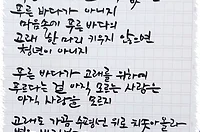 푸른 바다가 아니지
마음속에 푸른 바다의
고래 한 마리 키우지 않으면
청년이 아니지
푸른 바다가 고래를 위하여
푸르다는 걸 아직 모르는 사람은
아직 사랑을 모르지
고래도 가끔 수평선 위로 치솟아올라